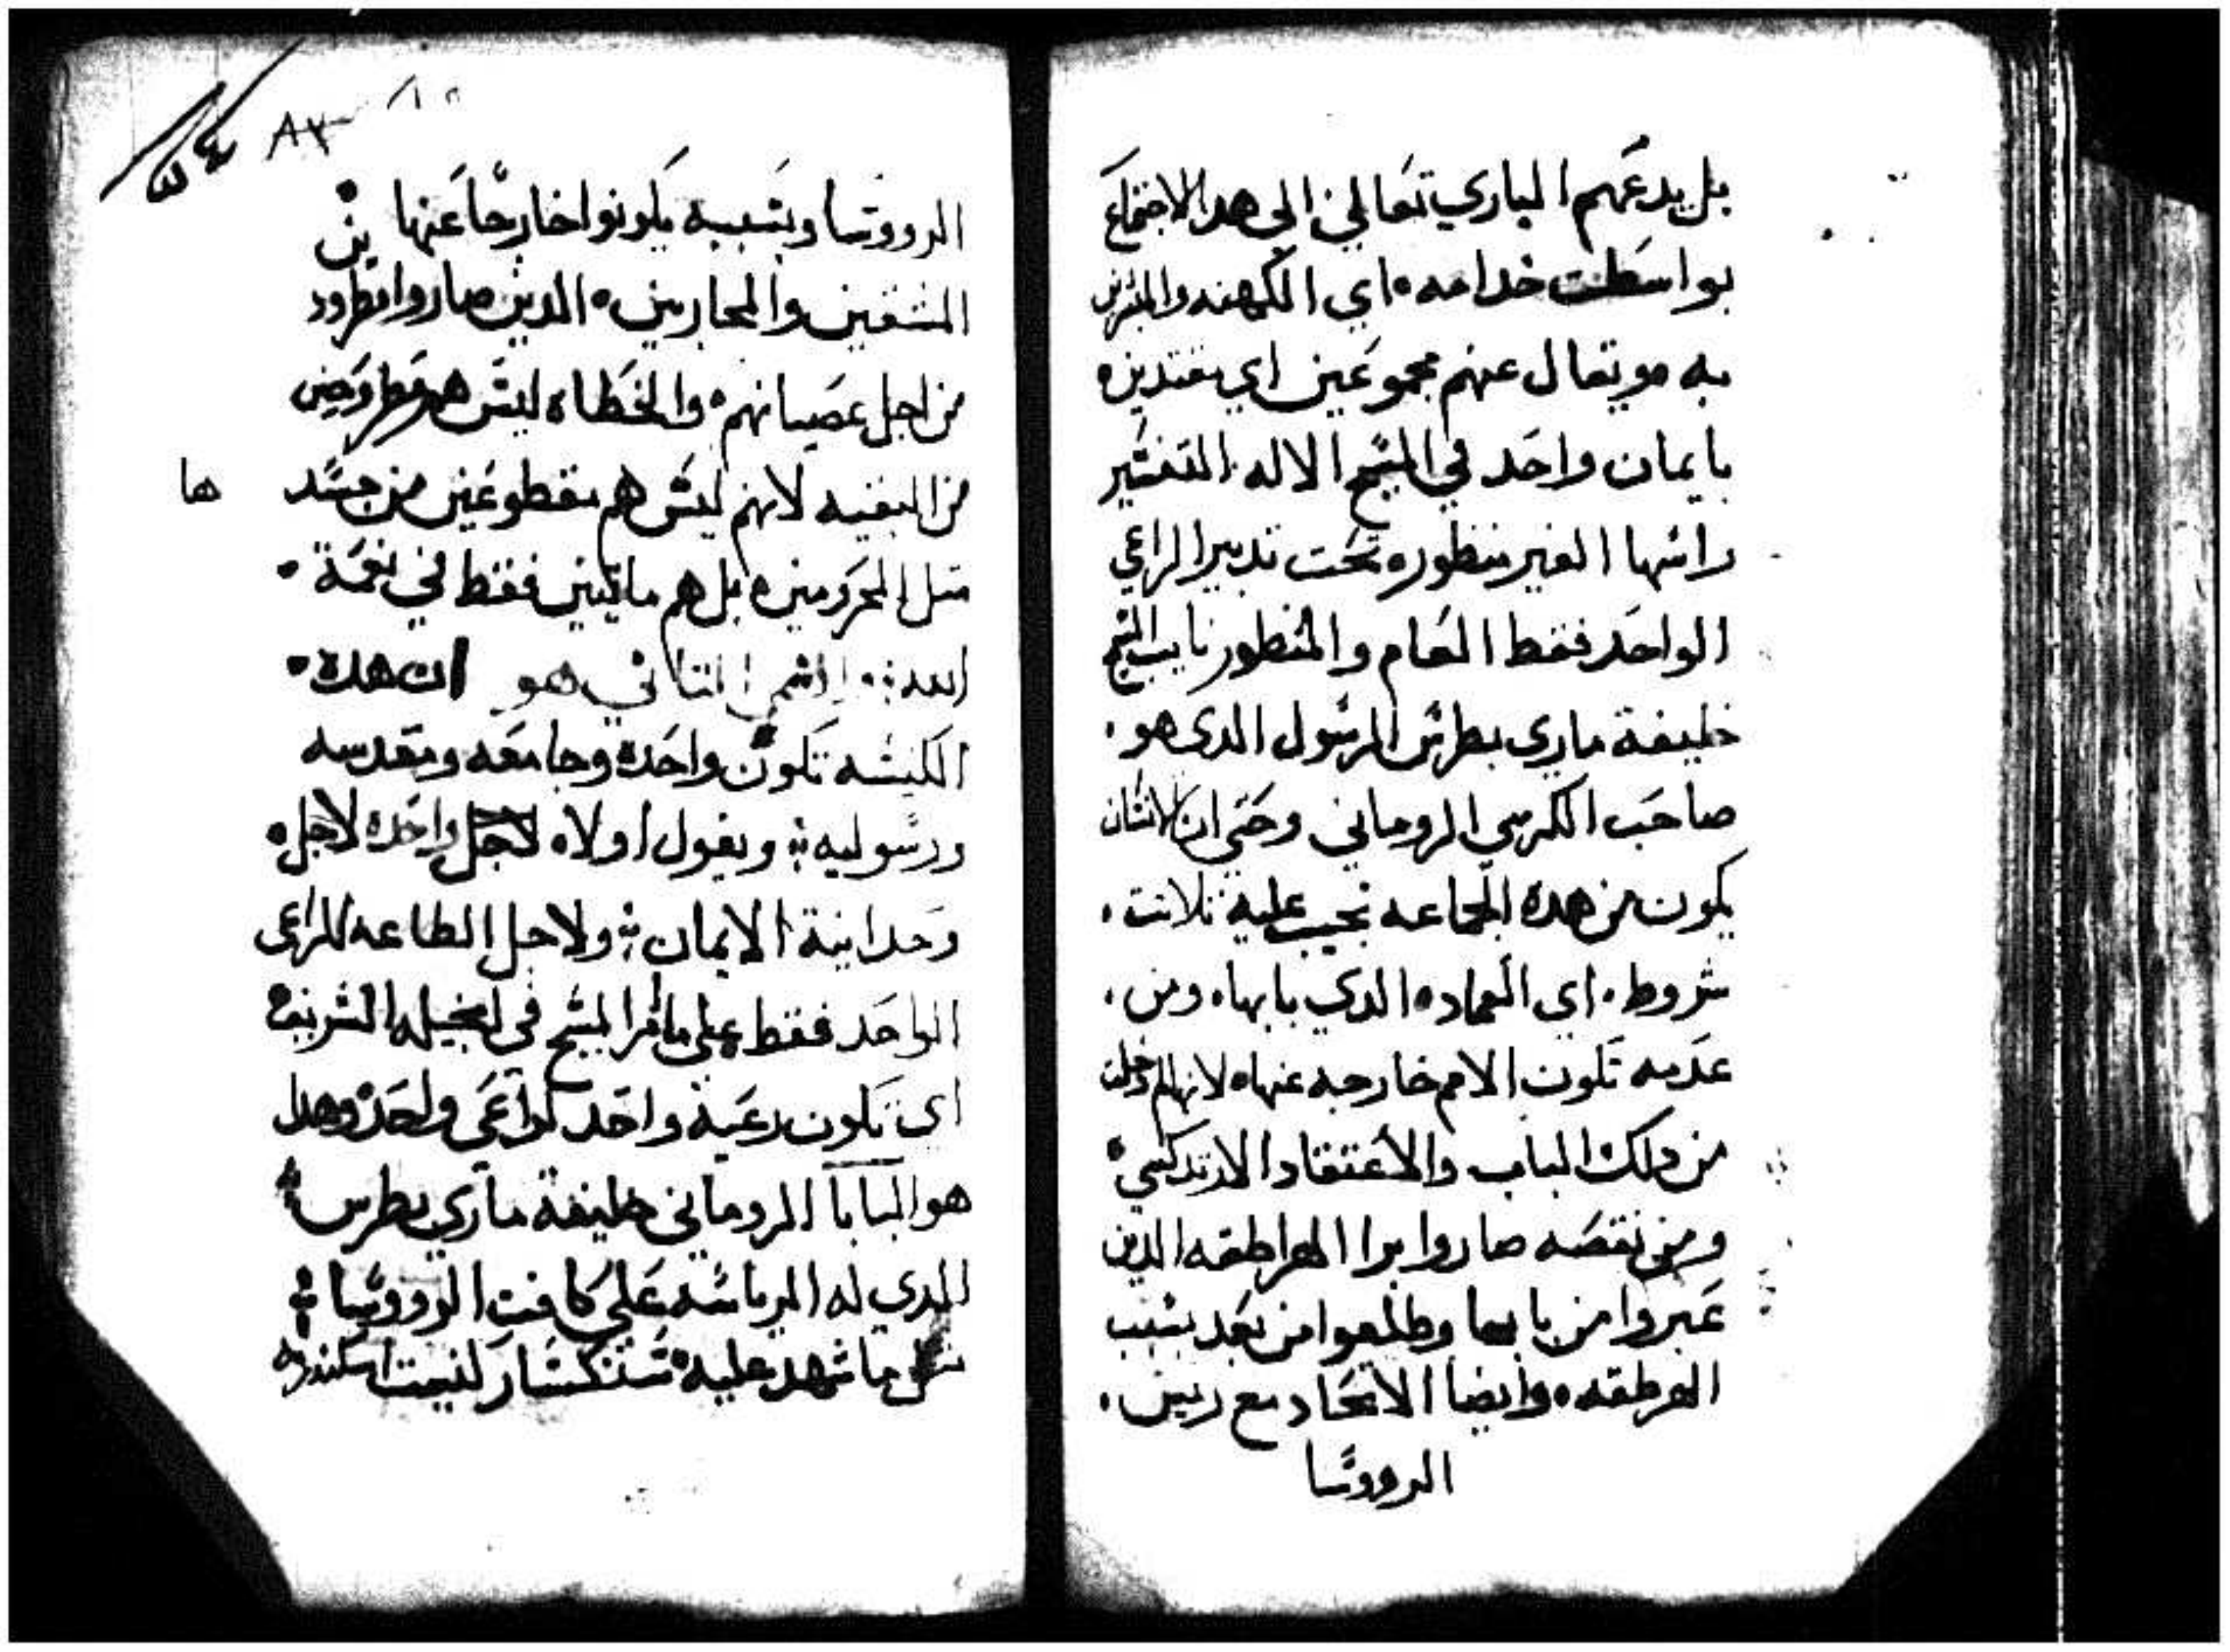 بل يدعهم الباري تعالي الي هدا الاجتماع
بواسطت خدامه اي الكهنه والمبشرين
به ويقال عنهم مجموعين اي معتدين
بايمان واحد في المسيح الاله المتفسير
راسها الغير منظوره تحت تدبير الراعي
الواحد فقط العام والمنظور نايب المسيح
خليفة ماري بطرس الرسول الدي هو
صاحب الكرسي الروماني وحتي ان الانسان
يكون من هده الجماعه يجب عليه تلاتت
شروط اي العماده الدي بابها ومن
عدمه تكون الامم خارجه عنها لانها لم دخلت
من دلك الباب والاعتقاد الارتدكسي
ومن نقصه صاروا برا الهراطقه الدين
عبروا من بابها وطلعوا من بعد بسبب
الهرطقه وايضا الاتحاد مع ريس
الرووسا
٨٧
٥٤
الرووسا وبسببه يكونوا خارجا عنها
المشقين والمحاربين الدين صاروا مطرودين
من اجل عصيانهم والخطاه ليس هم مفروضين
من البقيه لانهم ليس هم مقطوعين من جسدها
متل المحرومين بل هم مايتين فقط في نعمة
الله القسم التاني هو ان هده
الكنيسه تكون واحده وجامعه ومقدسه
ورسوليه ويقول اولا واحده لاجل
وحدانية الايمان ولاجل الطاعه للراعي
الواحد فقط علي ما امر المسيح في انجيله الشريف
اي تكون رعية واحد لراعي واحد وهدا
هو البابا الروماني خليفة ماري بطرس
الدي له الرياسه علي كافت الرووسا
متل ما شهد عليه سنكسار كنيست اسكندريه